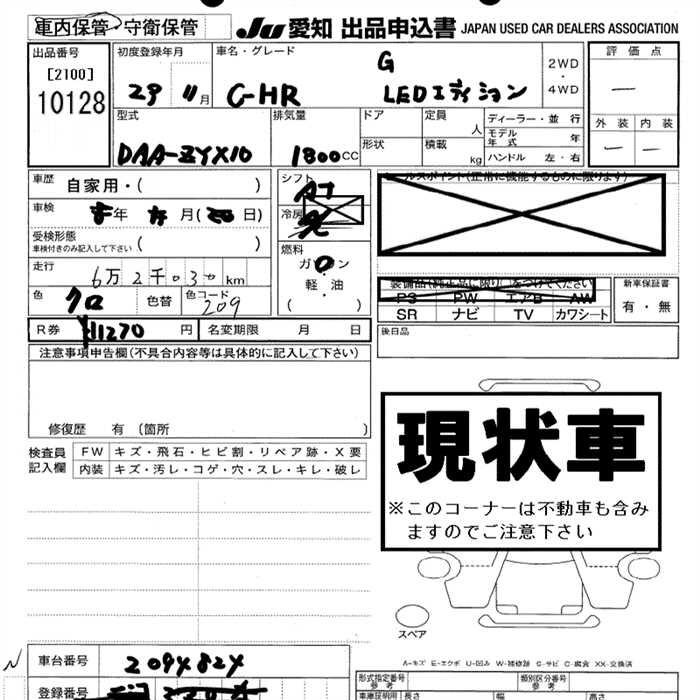 車内保管・守衛保管
JU 愛知 出品申込書 JAPAN USED CAR DEALERS ASSOCIATION
出品番号
[2100]
10128
初度登録年月
29 11月
車名・グレード
G
C-HR LEDエディション
2WD
・
4WD
評価点
—
外装 内装
— —
型式
DAA-ZYX10
排気量
1800CC
ドア
形状
定員 人
積載 kg
ディーラー・並行
モデル年式 年
ハンドル 左・右
車歴 自家用・( )
車検 年 月( 日)
受検形態
車検付きのみ記入して下さい ( )
走行
6万2千030km
色 クロ 色替 色コード 209
シフト
AT
冷房
燃料
ガソリン
・
軽・油
( )
セールスポイント(正常に機能するものに限ります)
装備品(純正品に限り○をつけてください)
PS PW エアB AW
SR ナビ TV カワシート
新車保証書
有・無
後日品
R券 ¥11270円 名変期限 月 日
注意事項申告欄(不具合内容等は具体的に記入して下さい)
修復歴 有 (箇所 )
検査員記入欄
FW キズ・飛石・ヒビ割・リペア跡・X要
内装 キズ・汚レ・コゲ・穴・スレ・キレ・破レ
現状車
※このコーナーは不動車も含み
ますのでご注意下さい
スペア
A-キズ E-エクボ U-凹み W-補修跡 S-サビ C-腐食 XX-交換済
車台番号 2094824
登録番号
形式指定番号
参考
類別区分番号
参考
車庫証明用 長さ 幅 高さ